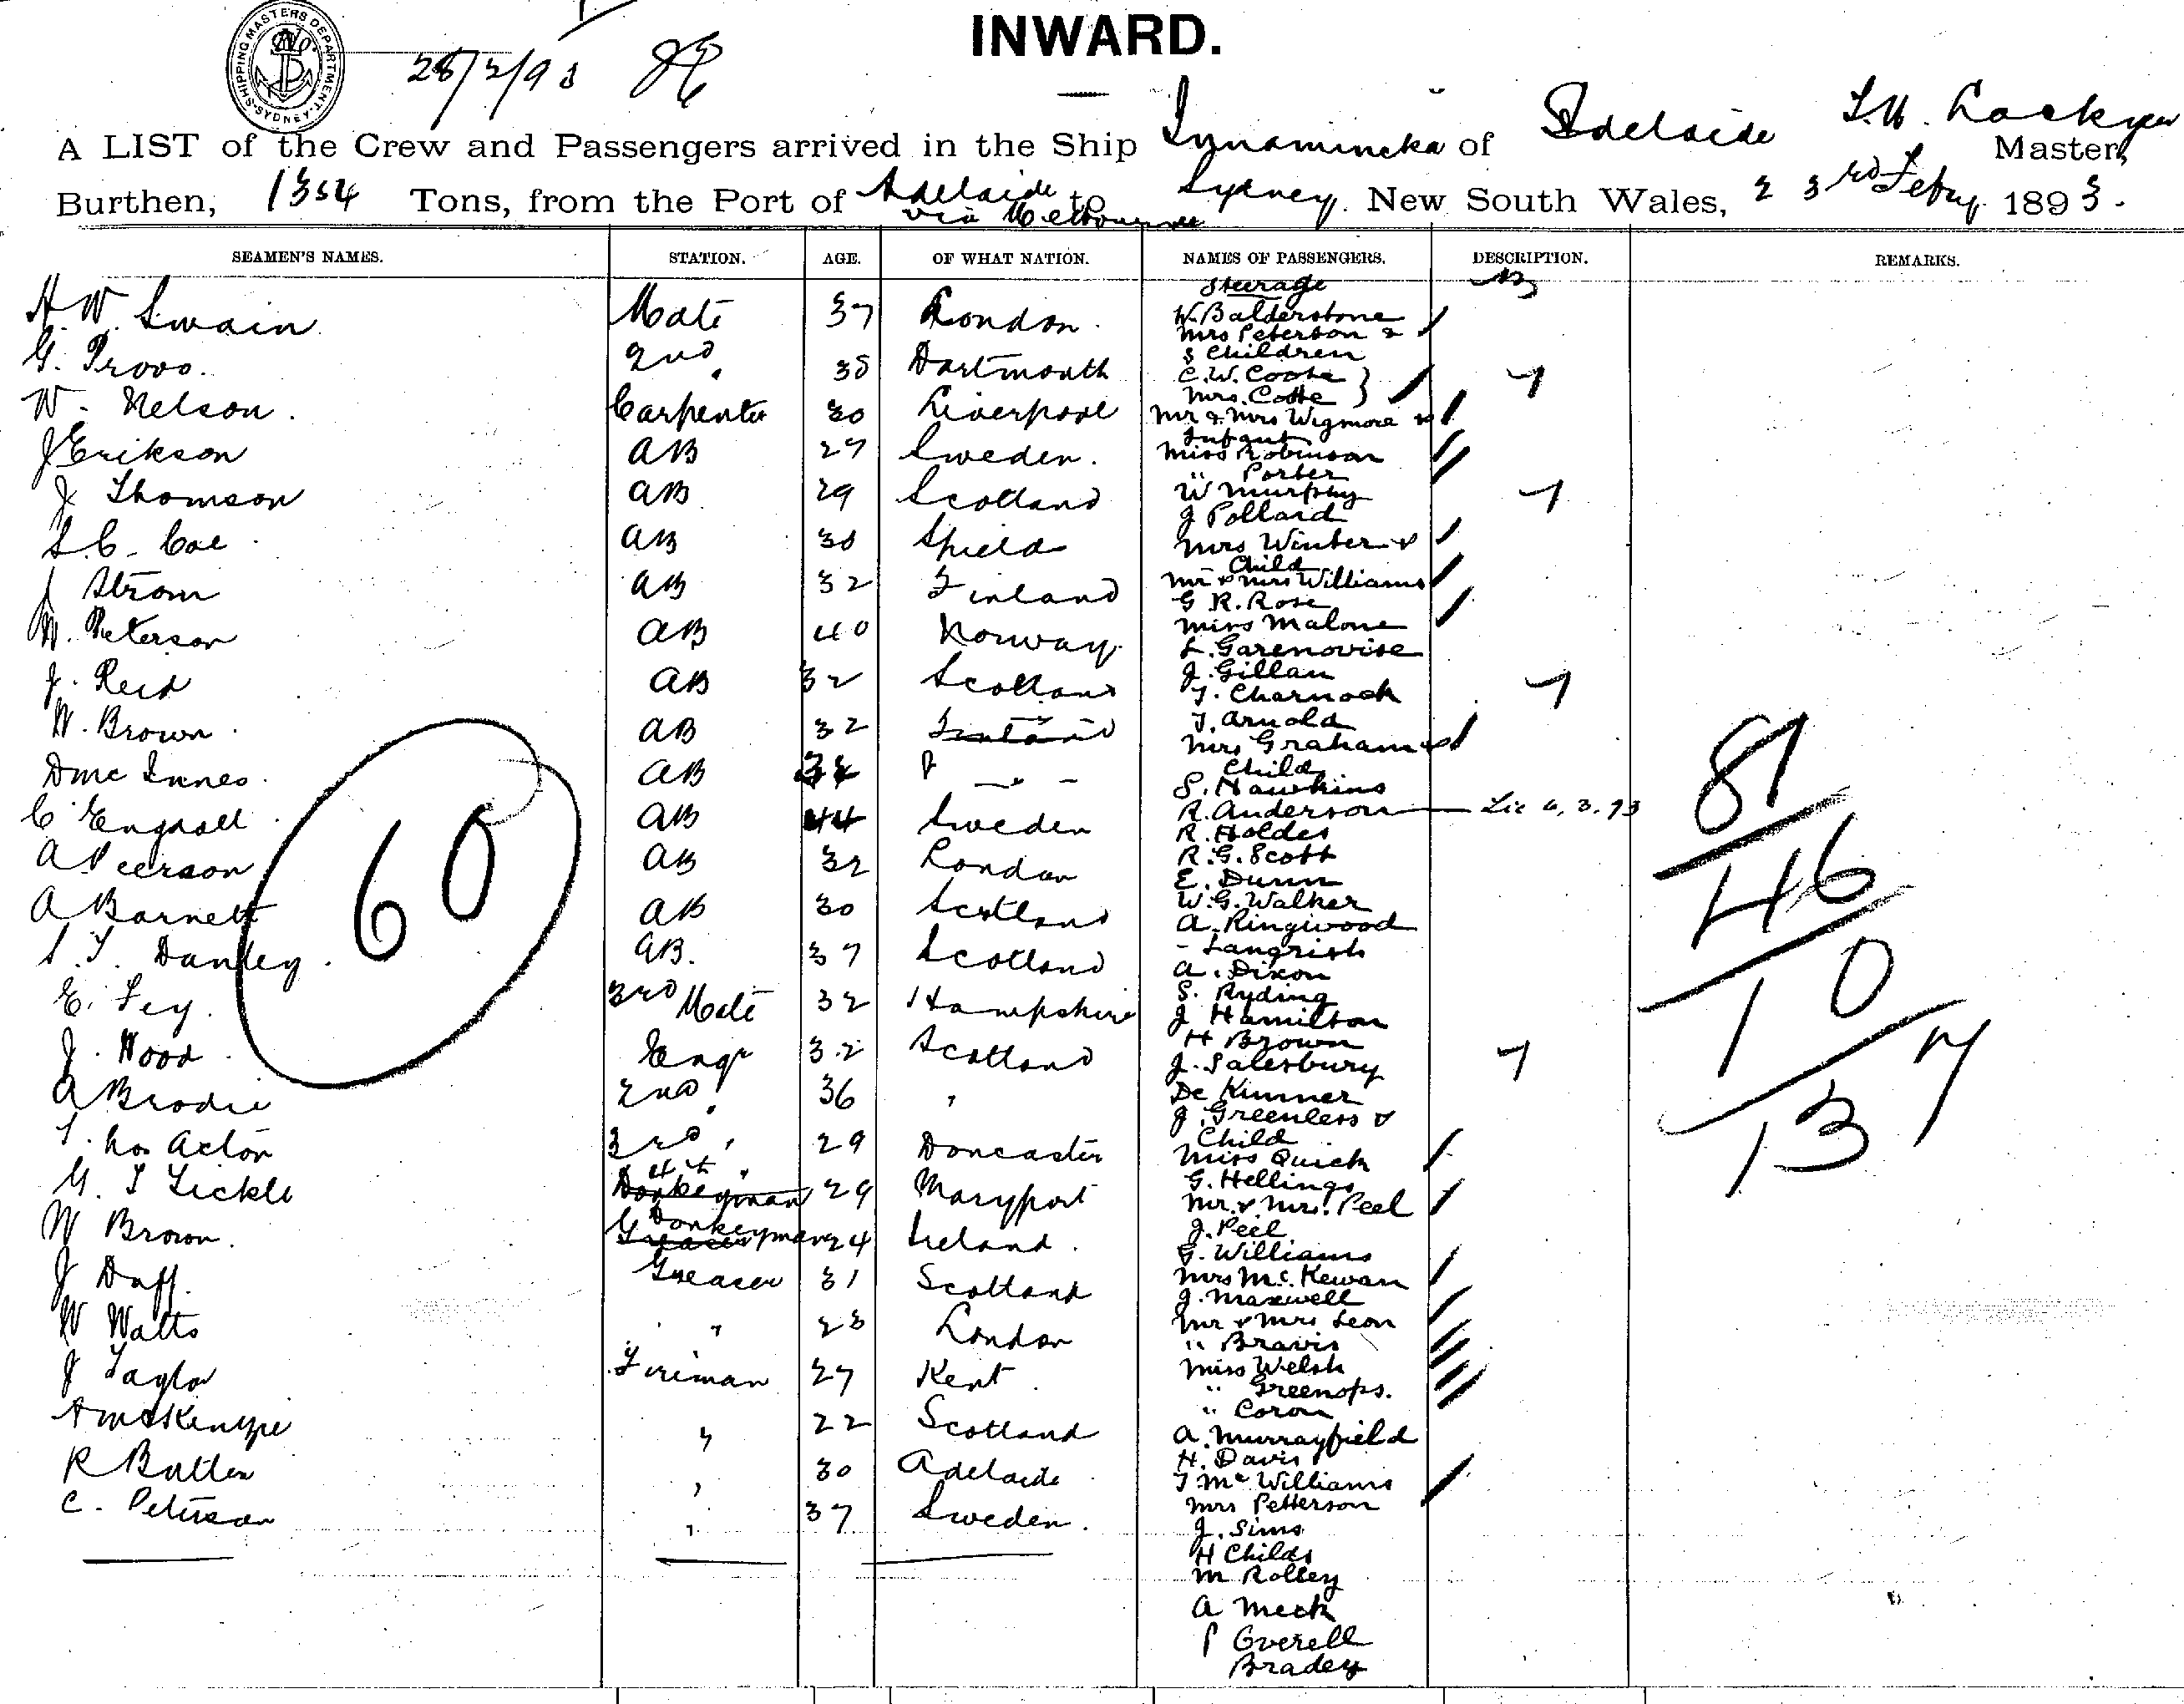 SHIPPING MASTERS DEPARTMENT.
SYDNEY
No.
28/2/93
INWARD.
A LIST of the Crew and Passengers arrived in the Ship Innamincka of Adelaide Master,
Burthen, 1354 Tons, from the Port of Adelaide to Sydney. New South Wales, 23rd Febry. 1893.
via Melbourne
SEAMEN'S NAMES. STATION. AGE. OF WHAT NATION. NAMES OF PASSENGERS. DESCRIPTION. REMARKS.
H. W. Swain Mate 37 London.
G. Provo. 2nd 38 Dartmouth
W. Nelson. Carpenter 30 Liverpool
J Erikson AB 27 Sweden.
J Thomson AB 29 Scotland
Coe AB 38 Shield
J Strom AB 32 Finland
Peterson AB 40 Norway.
J. Reid AB 32 Scotland
W. Brown AB 32
D Mc Innes AB
C AB 44 Sweden
A Peerson AB 32 London
A Barnett AB 30 Scotland
AB. 37 Scotland
E. Fey. 3rd Mate 32 Hampshire
J. Wood Engr 32 Scotland
A Brodie 2nd 36 "
Acton 3rd 29 Doncaster
Tickle 4th Donkeyman 29 Maryport
W Brown. Donkeyman 24 Ireland.
J Duff. Greaser 31 Scotland
W Watts " 23 London
J Taylor Fireman 27 Kent.
A McKenzie " 22 Scotland
R Butler " 30 Adelaide
C. Peterson " 37 Sweden.
60
Steerage
W. Balderstone
Mrs Peterson &
3 Children
C. W. Coote
Mrs. Cotte
Mr & Mrs Wigmore &
Infant
Miss Robinson
" Porter
W Murphy
J Pollard
Mrs Winter &
Child
Mr & Mrs Williams
G R. Rose
Miss Malone
L. Garenovise
J. Gillan
T. Charnock
T. Arnold
Mrs Graham &
Child
S. Hawkins
R. Anderson
R. Holder
R. G. Scott
E. Dunn
W. G. Walker
A. Ringwood
- Langrish
A. Dixon
S. Ryding
J Hamilton
H Brown
J. Salesbury
De Kimner
J. Greenless &
Child
Miss Quick
G. Hellings
Mr. & Mrs. Peel
J. Peel
G. Williams
Mrs Mc. Kewan
J. Maxwell
Mr & Mrs Leon
" Bravis
Miss Welsh
" Greenops.
" Coron
A. Murrayfield
H. Davis
T Mc Williams
Mrs Petterson
J. Sims
H Childs
M Rolley
A Meck
P Overell
Bradey
81
46
10
137